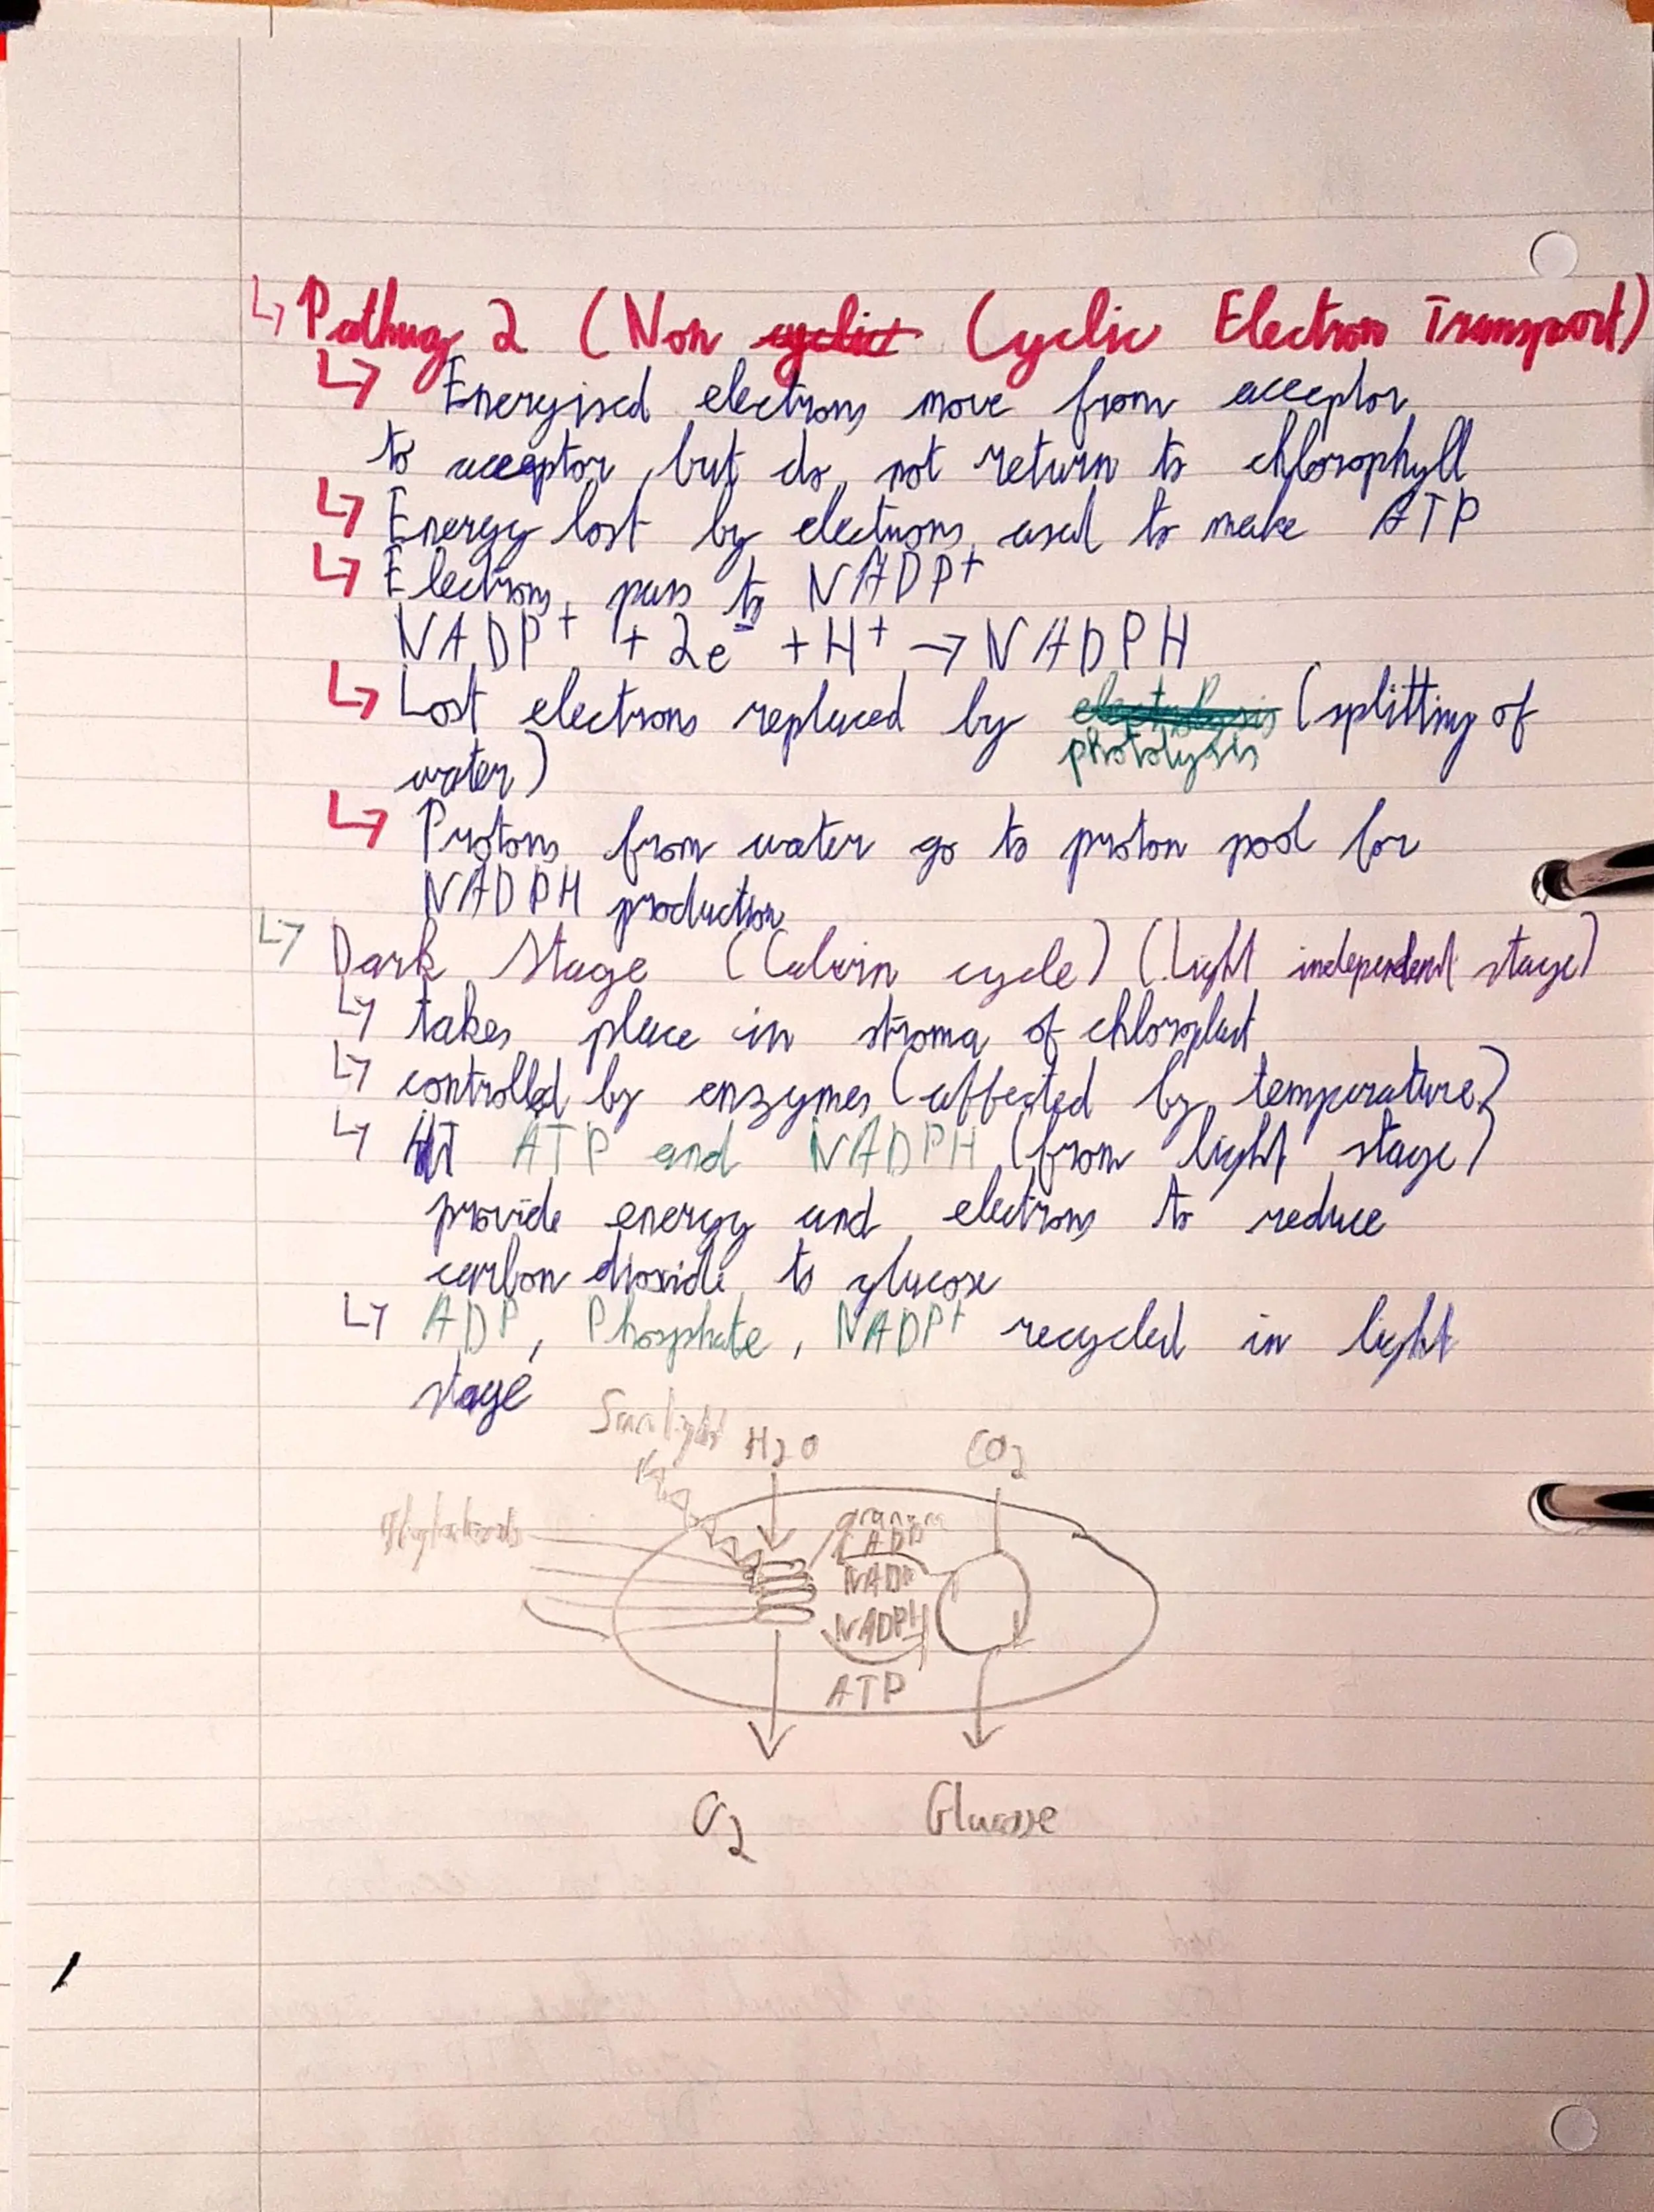 ↳ Pathway 2 (Non Cyclic Electron Transport)
↳ Energised electrons move from acceptor
to acceptor, but do not return to chlorophyll
↳ Energy lost by electrons used to make ATP
↳ Electrons pass to NADP⁺
NADP⁺ + 2e⁻ + H⁺ → NADPH
↳ Lost electrons replaced by (splitting of
photolysis
water)
↳ Protons from water go to proton pool for
NADPH production
↳ Dark Stage (Calvin cycle) (Light independent stage)
↳ takes place in stroma of chloroplast
↳ controlled by enzymes (affected by temperature)
↳ ATP and NADPH (from light stage)
provide energy and electrons to reduce
carbon dioxide to glucose
↳ ADP, Phosphate, NADP⁺ recycled in light
stage
Sunlight H2O CO2
Thylakoids
ADP
NADP
NADPH
ATP
O2 Glucose